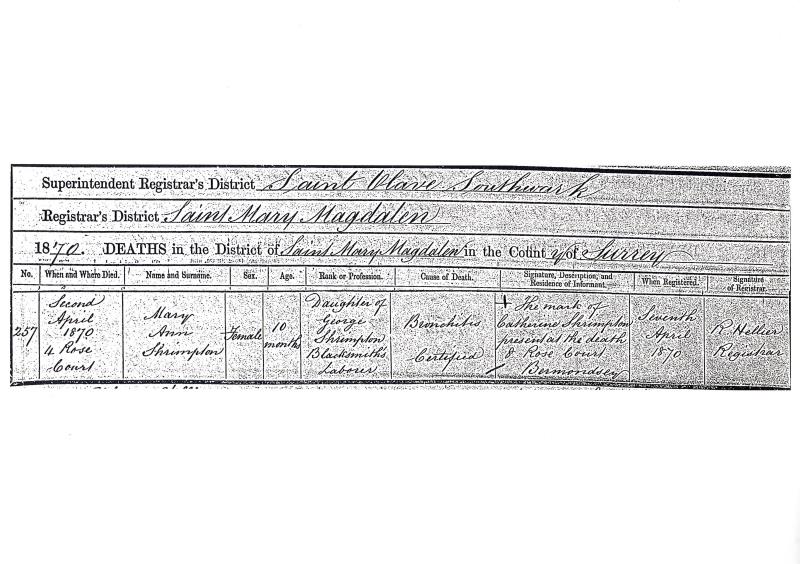 Superintendent Registrar's District Saint Olave Southwark
Registrar's District Saint Mary Magdalen
1870. DEATHS in the District of Saint Mary Magdalen in the County of Surrey
No. When and Where Died. Name and Surname. Sex. Age. Rank or Profession. Cause of Death. Signature, Description, and Residence of Informant. When Registered. Signature of Registrar.
257
Second
April
1870
4 Rose
Court
Mary
Ann
Shrimpton
Female
10
months
Daughter of
George
Shrimpton
Blacksmiths
Laborer
Bronchitis
Certified
The mark of
Catherine Shrimpton
present at the death
8 Rose Court
Bermondsey
Seventh
April
1870
R Hellier
Registrar